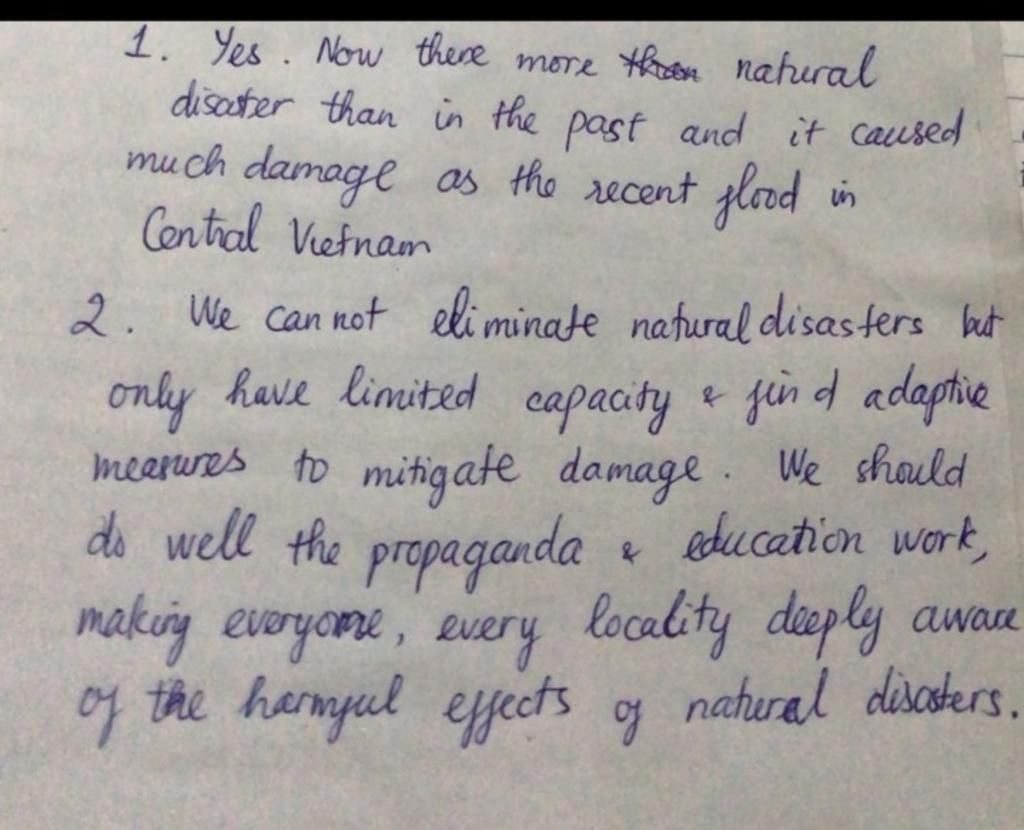 1. Yes. Now there more than natural
disaster than in the past and it caused
much damage as the recent flood in
Central Vietnam
2. We cannot eliminate natural disasters but
only have limited capacity & find adaptive
measures to mitigate damage. We should
do well the propaganda & education work,
making everyone, every locality deeply aware
of the harmful effects of natural disasters.